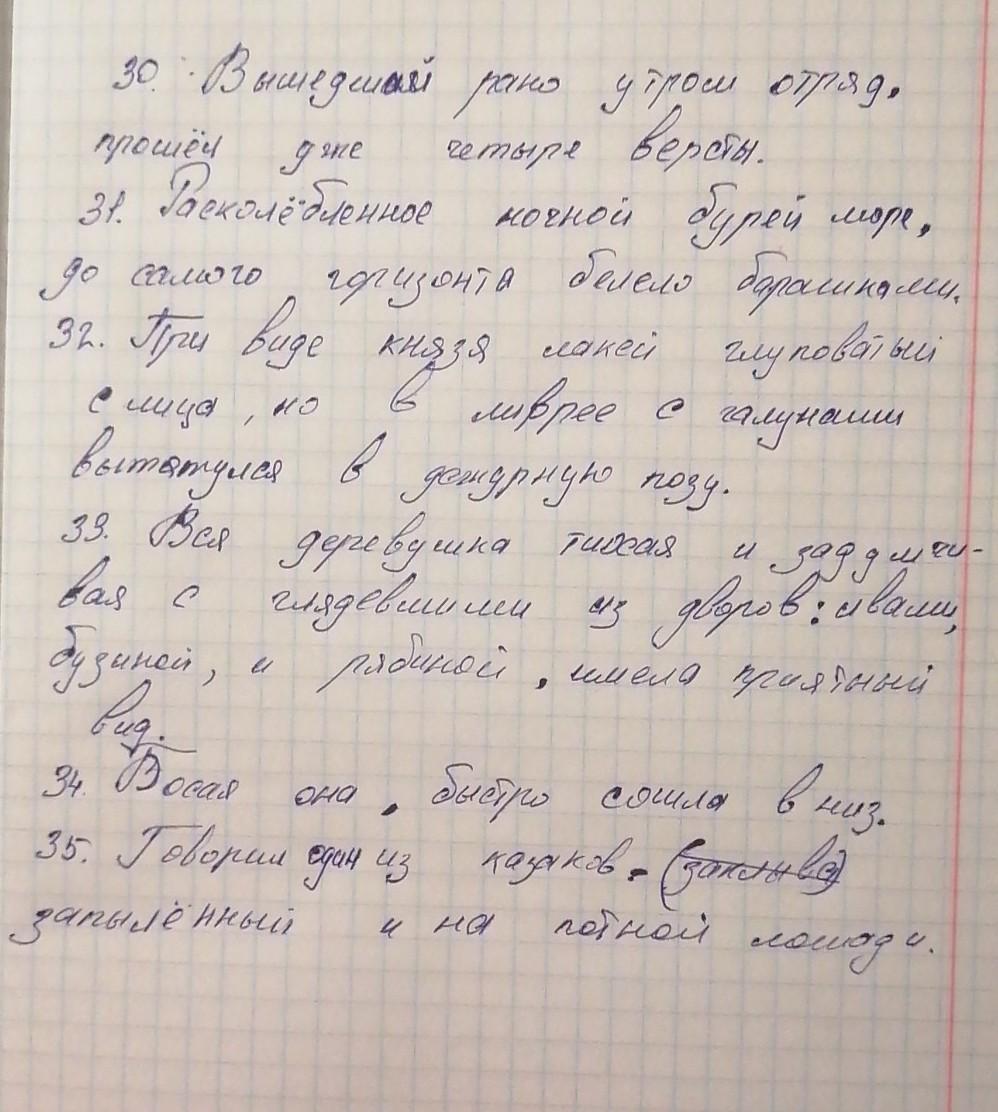 30. Вышедший рано утром отряд,
прошёл уже четыре версты.
31. Расколёбленное ночной бурей море,
до самого горизонта белело барашками.
32. При виде князя лакей глуповатый
с лица, но в ливрее с галунами
вытянулся в дежурную позу.
33. Вся деревушка тихая и задумчи-
вая с глядевшими из дворов: ивами,
бузиной, и рябиной, имела приятный
вид.
34. Босая она, быстро сошла в низ.
35. Говорил один из казаков,
запылённый и на потной лошади.